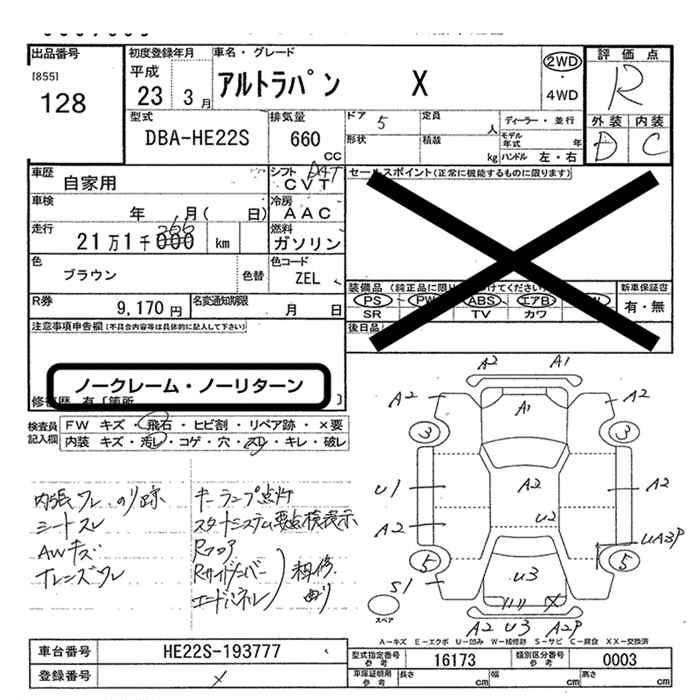 出品番号
[855]
128
初度登録年月
平成
23 3月
車名・グレード
アルトラパン X
2WD
・
4WD
評価点
R
外装 内装
D C
型式
DBA-HE22S
排気量
660
CC
ドア 5
定員
人
ディーラー・並行
形状
積載
kg
モデル年式 年
ハンドル 左・右
車歴
自家用
シフト D4T
CVT
セールスポイント(正常に機能するものに限ります)
車検
年 月( 日)
冷房
AAC
走行
21万1千000 km
366
燃料
ガソリン
色
ブラウン
色替
色コード
ZEL
装備品
PS PW ABS エアB
SR TV カワ
新車保証書
有・無
R券
9,170円
名変通知期限
月 日
後日品
注意事項申告欄(不具合内容等は具体的に記入して下さい)
ノークレーム・ノーリターン
検査員記入欄
FW キズ・飛石・ヒビ割・リペア跡・×要
内装 キズ・汚レ・コゲ・穴・スレ・キレ・破レ
内張ワレ のり跡
シートスレ
AWキズ
キーランプ点灯
スタートシステム要点検表示
Rフロア
エンドパネル
A2 A1
A2 A1 A2
3 3
U1 A2 A2
A2 U2
5 5
UA3P
S1 U3
スペア
A2 U3 A2P
A-キズ E-エクボ U-凹み W-補修跡 S-サビ C-腐食 XX-交換済
車台番号 HE22S-193777
登録番号
型式指定番号 参考 16173
類別区分番号 参考 0003
車庫証明用 参考 長さ cm 幅 cm 高さ cm